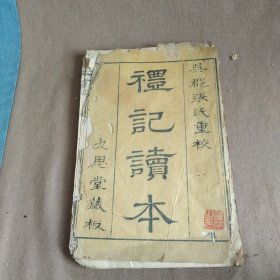 吳郡張氏重校
禮記讀本
九思堂藏板